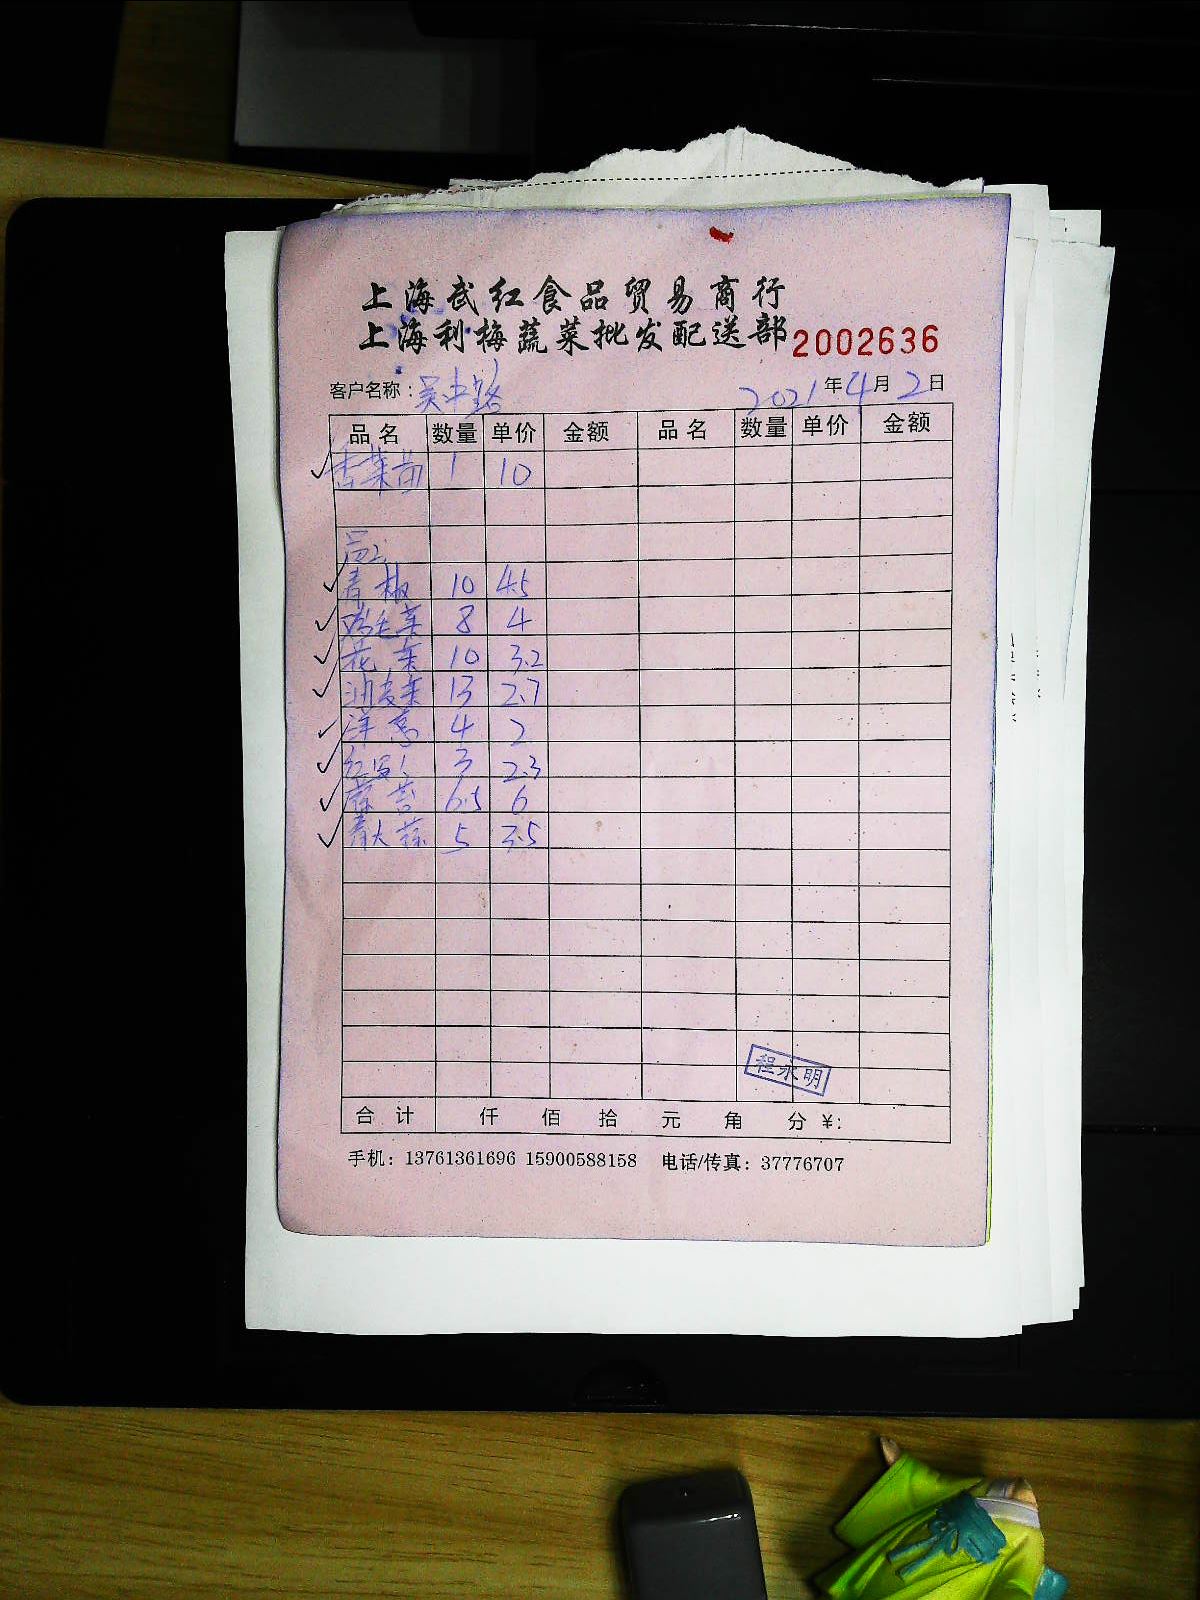 上海武红食品贸易商行
上海利梅蔬菜批发配送部 2002636
客户名称：吴中路 2021年4月2日
品名 数量 单价 金额 品名 数量 单价 金额
香菜苗 1 10
员工
青椒 10 4.5
鸡毛菜 8 4
花菜 10 3.2
油麦菜 13 2.7
洋葱 4 2
红罗卜 3 2.3
6.5 6
青大蒜 5 3.5
程永明
合计 仟 佰 拾 元 角 分 ¥:
手机：13761361696 15900588158 电话/传真：37776707